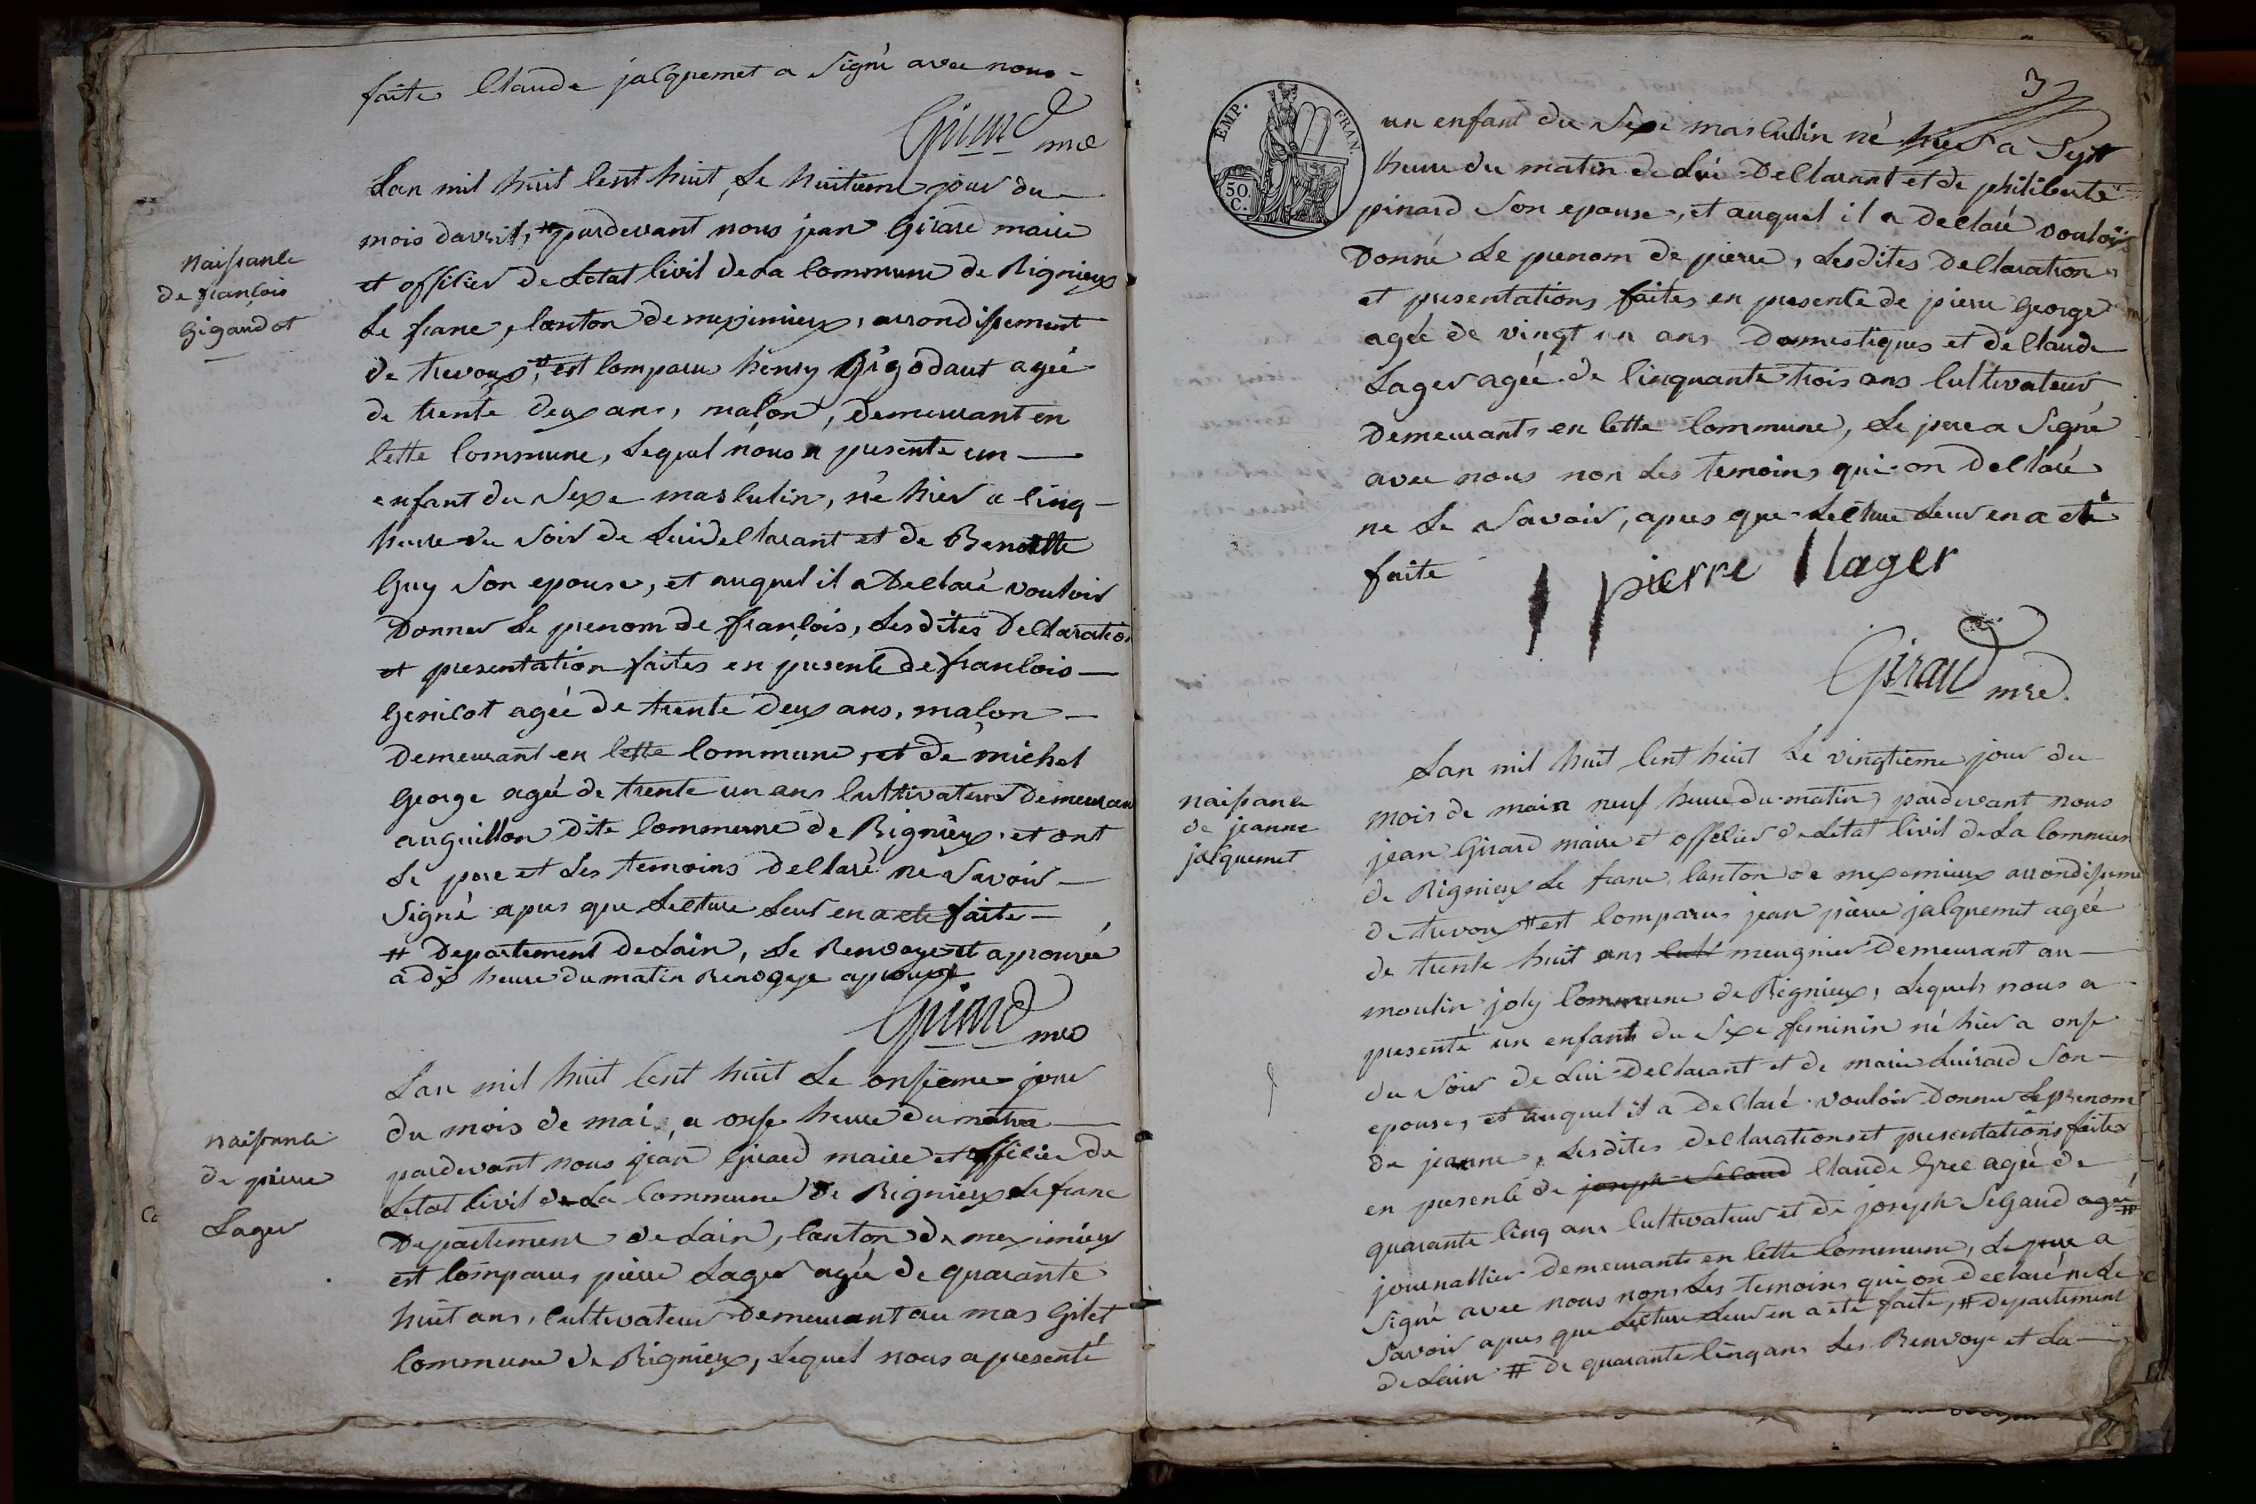 faite Claude jacquemet a Signé avec nous
Girard mre
Naissance
de françois
Gigandot
Lan mil huit Cent huit, Le huitieme jour du
mois davril, # pardevant nous jean Girard maire
et officier de Letat Civil de La Commune de Rignieux
Le franc, Canton de meximieux, arrondissement
de trevoux, # est Comparu henry Gigodaut agée
de trente deux ans, maçon, Demeurant en
Cette Commune, Lequel nous a presente un
enfant du Sexe masculin, né hier a Cinq
heure du Soir de Lui declarant et de Benoitte
Guy Son epouse, et auquel il a Declaré vouloir
Donner Le prenom de françois, Lesdites Declaration
et presentation faites en presence de francois
Genicot agée de trente deux ans, maçon
Demeurant en Cette Commune, et de michel
George agée de trente un ans Cultivateur Demeurant
auguillon dite Commune de Rignieux, et ont
Le pere et Les temoins declaré ne Savoir
Signé apres que Lecture Leur en a ete faite
# Departement de Lain, Le Renvoye et aprouvée
a dix heure du matin Renvoye aprouvé
Girard mre
naissance
de pierre
Lager
Lan mil huit Cent huit Le onsieme jour
du mois de mai, a onse heure du matin
pardevant nous jean Girard maire et officier de
Letat Civil de La Commune de Rignieux Le franc
Departement de Lain, Canton de meximieux
est Comparus pierre Lager agée de quarante
huit ans, Cultivateur Demeurant au mas Gilet
Commune de Rignieux, Lequel nous a presenté
3
EMP. FRAN.
50 C.
un enfant du Sexe masculin né hier a Sept
heure du matin de Lui Declarant et de philiberte
pinard Son epouse, et auquel il a Declaré vouloir
Donné Le prenom de pierre, Lesdites Declaration
et presentations faites en presence de pierre George
agée de vingt un ans Domestiques et de Claude
Lager agée de Cinquante trois ans Cultivateur
Demeurants en Cette Commune, Le pere a Signé
avec nous non Les temoins qui on Declaré
ne Le Savoir, apres que Lecture Leur en a eté
faite
pierre lager
Girard mre
naissance
de jeanne
jacquemet
Lan mil huit Cent huit Le vingtieme jour du
mois de mai a neuf heure du matin, pardevant nous
jean Girard maire et officier de Letat Civil de La Commune
de Rignieux Le franc, Canton de meximieux arrondisseme
de trevoux # est Comparus jean pierre jacquemet agée
de trente huit ans Cult meugnier Demeurant au
moulin joly Commune de Rignieux, Lequels nous a
presenté un enfant du Sexe feminin né hier a onse
du Soir de Lui Declarant et de marie Luirard Son
epouse, et auquel il a Declaré vouloir Donner Le prenom
de jeanne, Lesdites declarations et presentations faites
en presence de joseph Selaud Claude Gree agée de
quarante Cinq ans Cultivateur et de joseph SeGaud agée #
journallier demeurants en Cette Commune, Le pere a
Signé avec nous non Les temoins qui on Declaré ne Le
Savoir apres que Lecture Leur en a été faite, # departement
de Lain # de quarante Cinq ans Les Renvoye et La